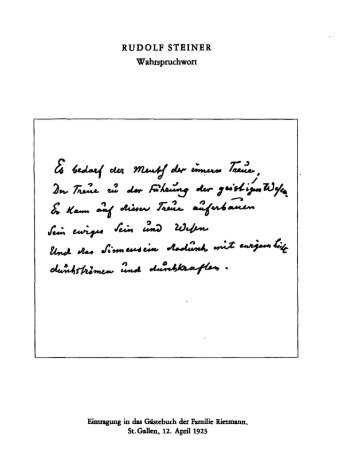 RUDOLF STEINER
Wahrspruchwort
Es bedarf der Mensch der innern Treue,
Der Treue zu der Führung der geistigen Wesen.
Er kann auf dieser Treue auferbauen
Sein ewiges Sein und Wesen
Und das Sinnensein dadurch mit ewigem Licht
durchströmen und durchkraften.
Eintragung in das Gästebuch der Familie Rietmann,
St. Gallen, 12. April 1923